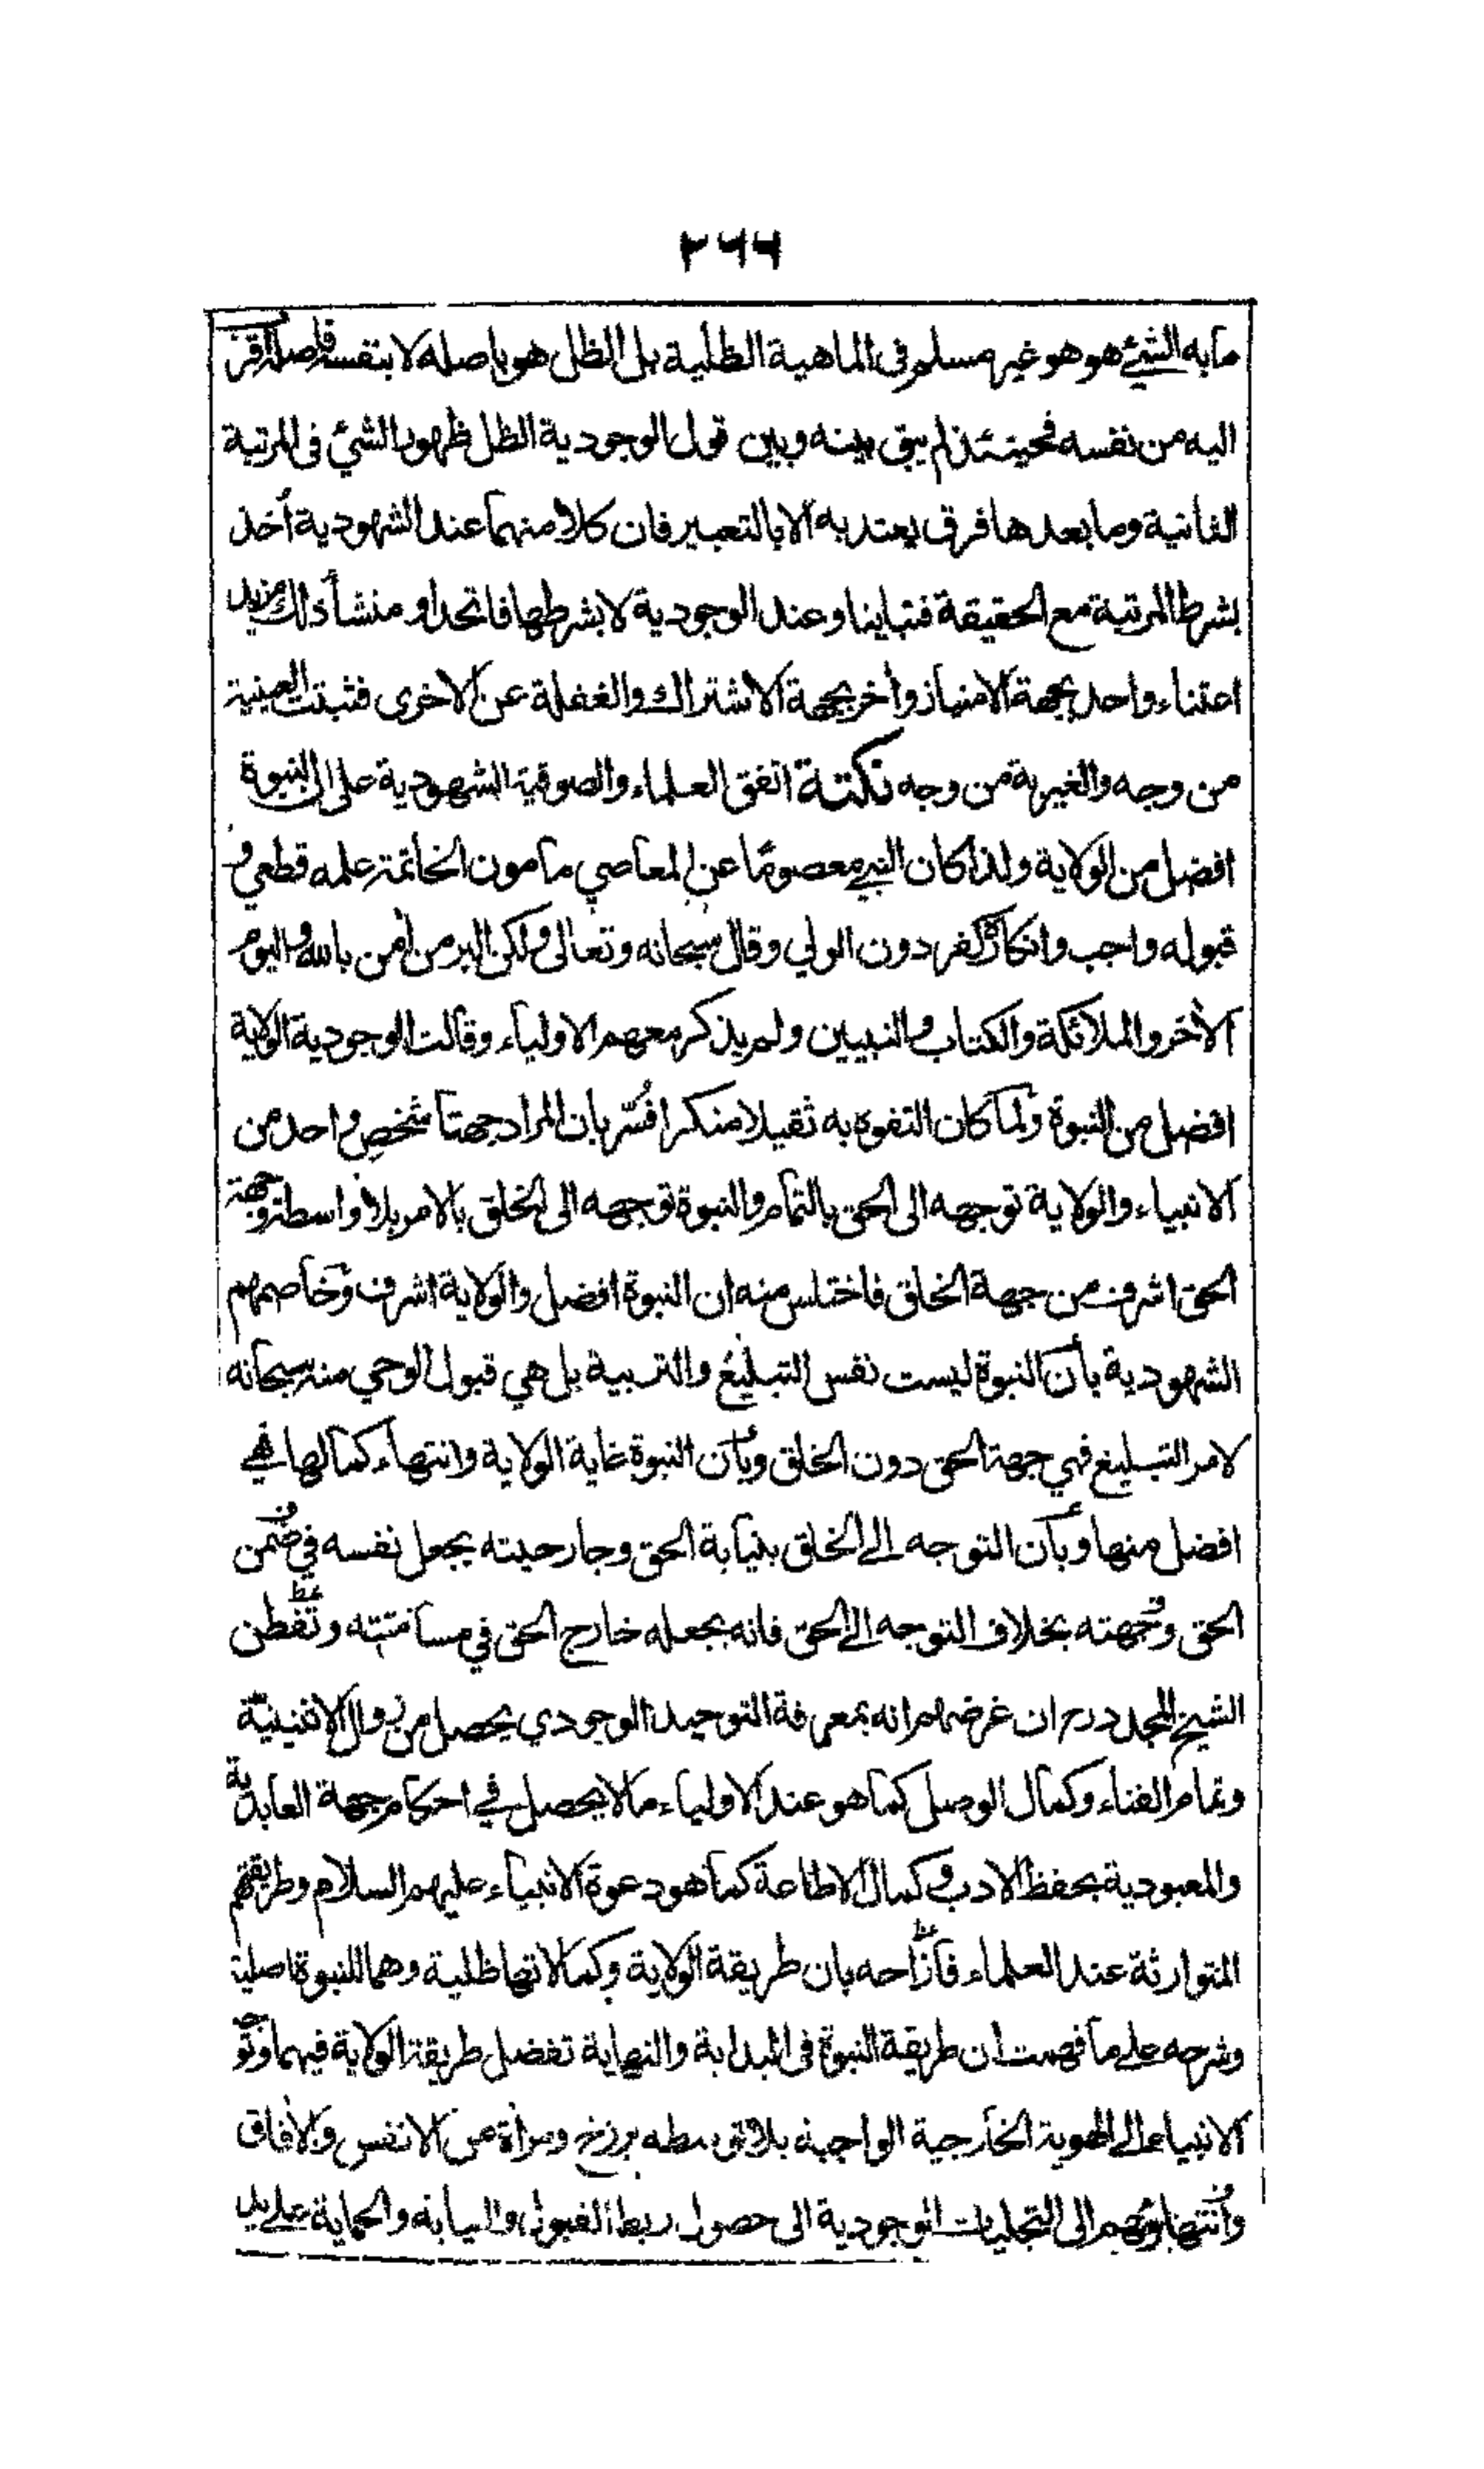 ٢٦٦
مابه الشيئ هو هو غير مسلم فى الماهية الظلية بل الظل هو باصله لا بنفسه فاصله اقرب
اليه من نفسه فحينئذ لم يبق بينه وبين قول الوجودية الظل ظهور الشيئ فى المرتبة
الثانية وما بعدها فرق يعتد به الا بالتعبير فان كلا منهما عند الشهودية أخذ
بشرط المرتبة مع الحقيقة فتباينا وعند الوجودية لا بشرطها فاتحدا ومنشأ ذالك مزيد
اعتناء واحد بجهة الامتياز وأخر بجهة الاشتراك والغفلة عن الاخرى فثبتت العينية
من وجه والغيرية من وجه نكتة اتفق العلماء والصوفية الشهودية على ان النبوة
افضل من الولاية ولذا كان النبي معصومًا عن المعاصي مامون الخاتمة علمه قطعي و
قبوله واجب وانكاره كفر دون الولي وقال سبحانه وتعالى ولكن البر من أمن بالله واليوم
الأخر والملائكة والكتاب والنبيين ولم يذكر معهم الاولياء وقالت الوجودية الولاية
افضل من النبوة ولما كان التفوه به ثقيلا منكرا فُسّر بان المراد جهتا شخص واحد من
الانبياء والولاية توجهه الى الحق بالتمام والنبوة توجهه الى الخلق بالامر بلا واسطة وجهة
الحق اشرف من جهة الخلق فاختلس منه ان النبوة افضل والولاية اشرف وخاصمهم
الشهودية بأن النبوة ليست نفس التبليغ والتربية بل هي قبول الوحي منه سبحانه
لامر التبليغ فهي جهة الحق دون الخلق وبأن النبوة غاية الولاية وانتهاء كمالها فهي
افضل منها وبأن التوجه الى الخلق بنيابة الحق وجارحيته يجعل نفسه في ضمن
الحق وجهته بخلاف التوجه الى الحق فانه يجعله خارج الحق في مسامتته وتفطن
الشيخ المجدد رح ان غرضهم انه بمعرفة التوحيد الوجودي يحصل من زوال الاثنينية
وتمام الفناء وكمال الوصل كما هو عند الاولياء ما لا يحصل في احكام جهة العابدية
والمعبودية بحفظ الادب وكمال الاطاعة كما هو دعوة الانبياء عليهم السلام وطريقتهم
المتوارثة عند العلماء فأزاحه بان طريقة الولاية وكمالاتها ظلية وهما للنبوة اصلية
وشرحه على ما فهمت ان طريقة النبوة فى البداية والنهاية تفضل طريقة الولاية فيهما وتوجه
الانبياء الى الهوية الخارجية الواجبة بلا توسط برزخ ومرأة من الانفس والأفاق
وانتهاؤهم الى التجليات الوجودية الى حصول ربط القبول والنيابة والحماية على يد